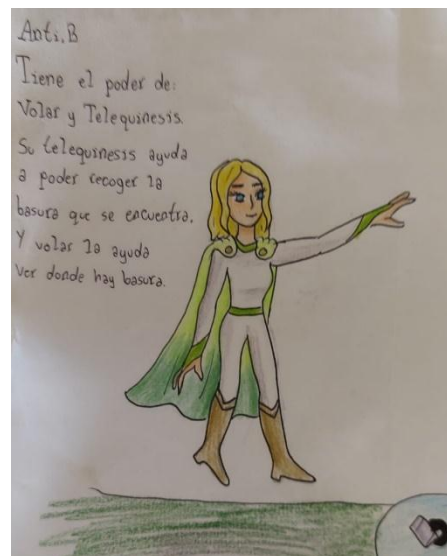 Anti.B
Tiene el poder de:
Volar y Telequinesis.
Su telequinesis ayuda
a poder recoger la
basura que se encuentra.
Y volar la ayuda
ver donde hay basura.